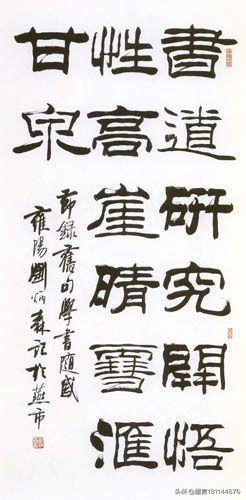 書道研究開悟
性高崖晴雪滙
甘泉
節錄舊句學書隨感
雍陽劉炳森記於燕市
头条 181144876